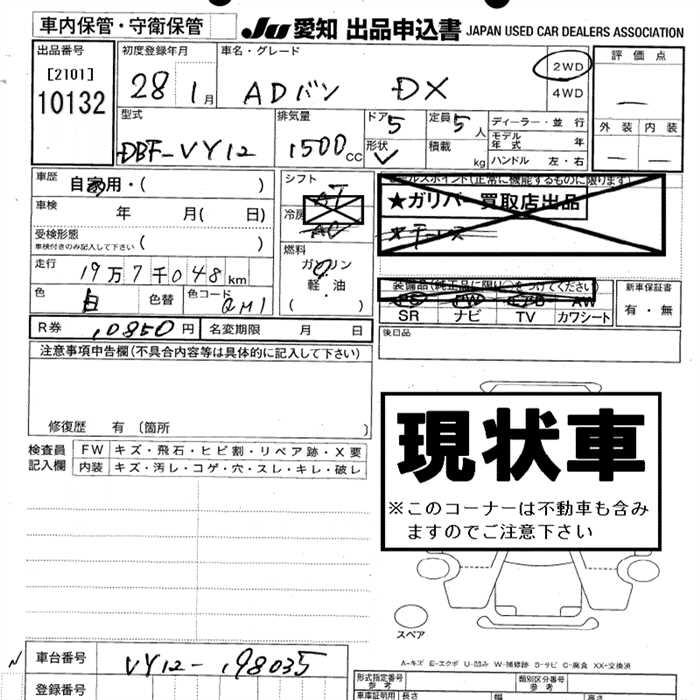 車内保管・守衛保管
JU 愛知 出品申込書 JAPAN USED CAR DEALERS ASSOCIATION
出品番号
[2101]
10132
初度登録年月
28 1月
車名・グレード
ADバン DX
2WD
4WD
評価点
—
外装 内装
— —
型式
DBF-VY12
排気量
1500cc
ドア 5
形状 V
定員 5人
積載 kg
ディーラー・並行
モデル年式 年
ハンドル 左・右
車歴
自家用・( )
車検
年 月( 日)
受検形態
車検付きのみ記入して下さい ( )
走行
19万7千048km
色
白
色替
色コード
QM1
シフト
AT
冷房
AC
燃料
ガソリン
軽・油
( )
セールスポイント(正常に機能するものに限ります)
★ガリバー買取店出品
装備品(純正品に限り○をつけてください)
PS PW エアB AW
SR ナビ TV カワシート
新車保証書
有・無
R券 10850円 名変期限 月 日
後日品
注意事項申告欄(不具合内容等は具体的に記入して下さい)
修復歴 有 (箇所 )
検査員記入欄
FW キズ・飛石・ヒビ割・リペア跡・X要
内装 キズ・汚レ・コゲ・穴・スレ・キレ・破レ
現状車
※このコーナーは不動車も含み
ますのでご注意下さい
スペア
A-キズ E-エクボ U-凹み W-補修跡 S-サビ C-腐食 XX-交換済
車台番号
VY12-198035
登録番号
型式指定番号
参考
類別区分番号
参考
車庫証明用 長さ 幅 高さ